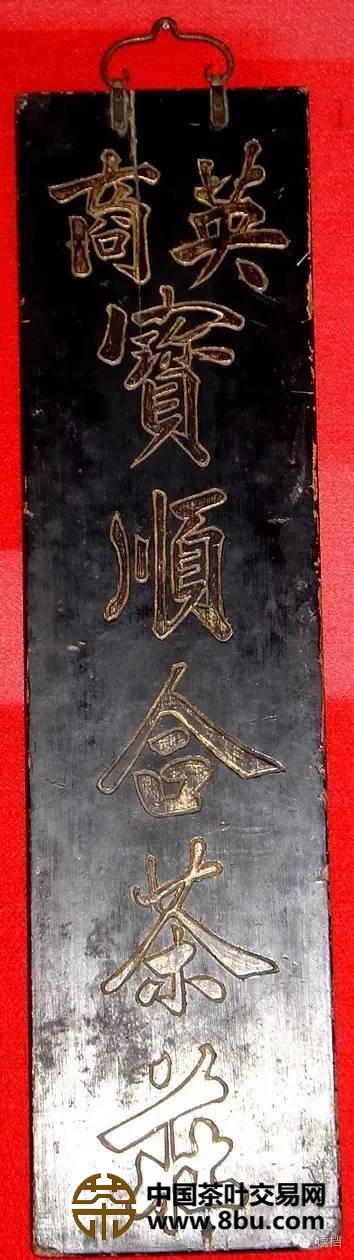 英商
寶順合茶莊
中国茶叶交易网
www.8bu.com
读档